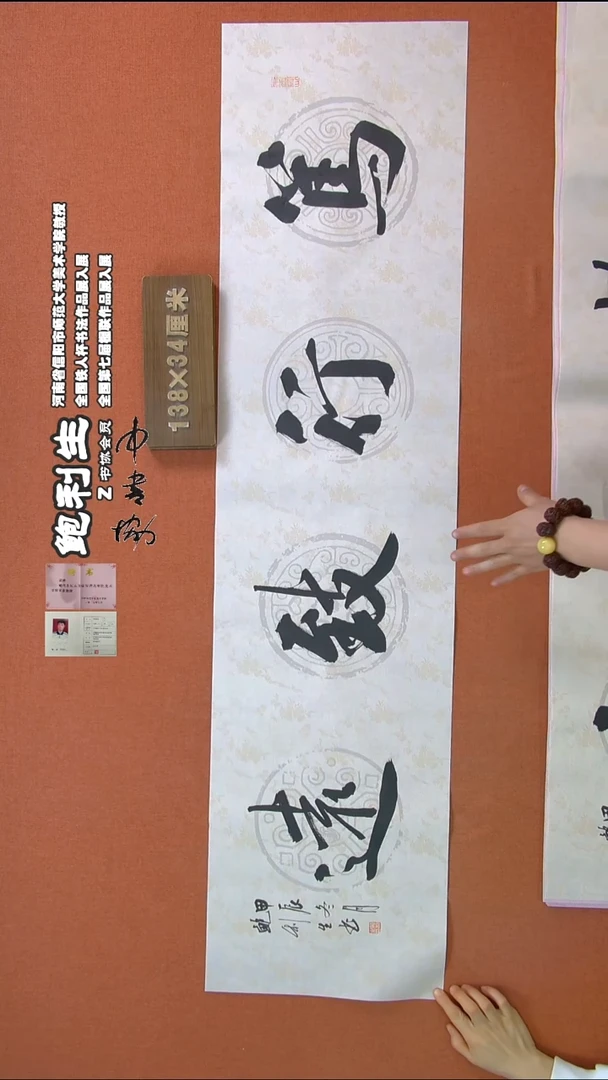 河南省信阳市师范大学美术学院教授
全国铁人杯书法作品展入展
全国第七届楹联作品展入展
鲍利生
Z 书协会员
138×34厘米
篤行致遠
甲辰冬月
鲍利生书